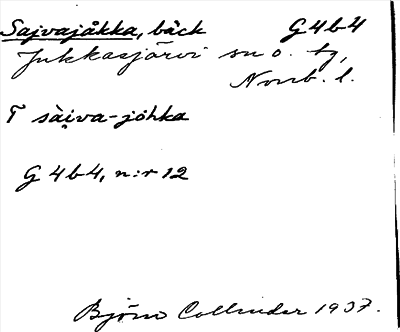 Sajvajåkka, bäck G4b4
Jukkasjärvi sn o. tg,
Norrb. l.
T sài̭va-jòhka
G 4b4, n:r 12
Björn Collinder 1937.